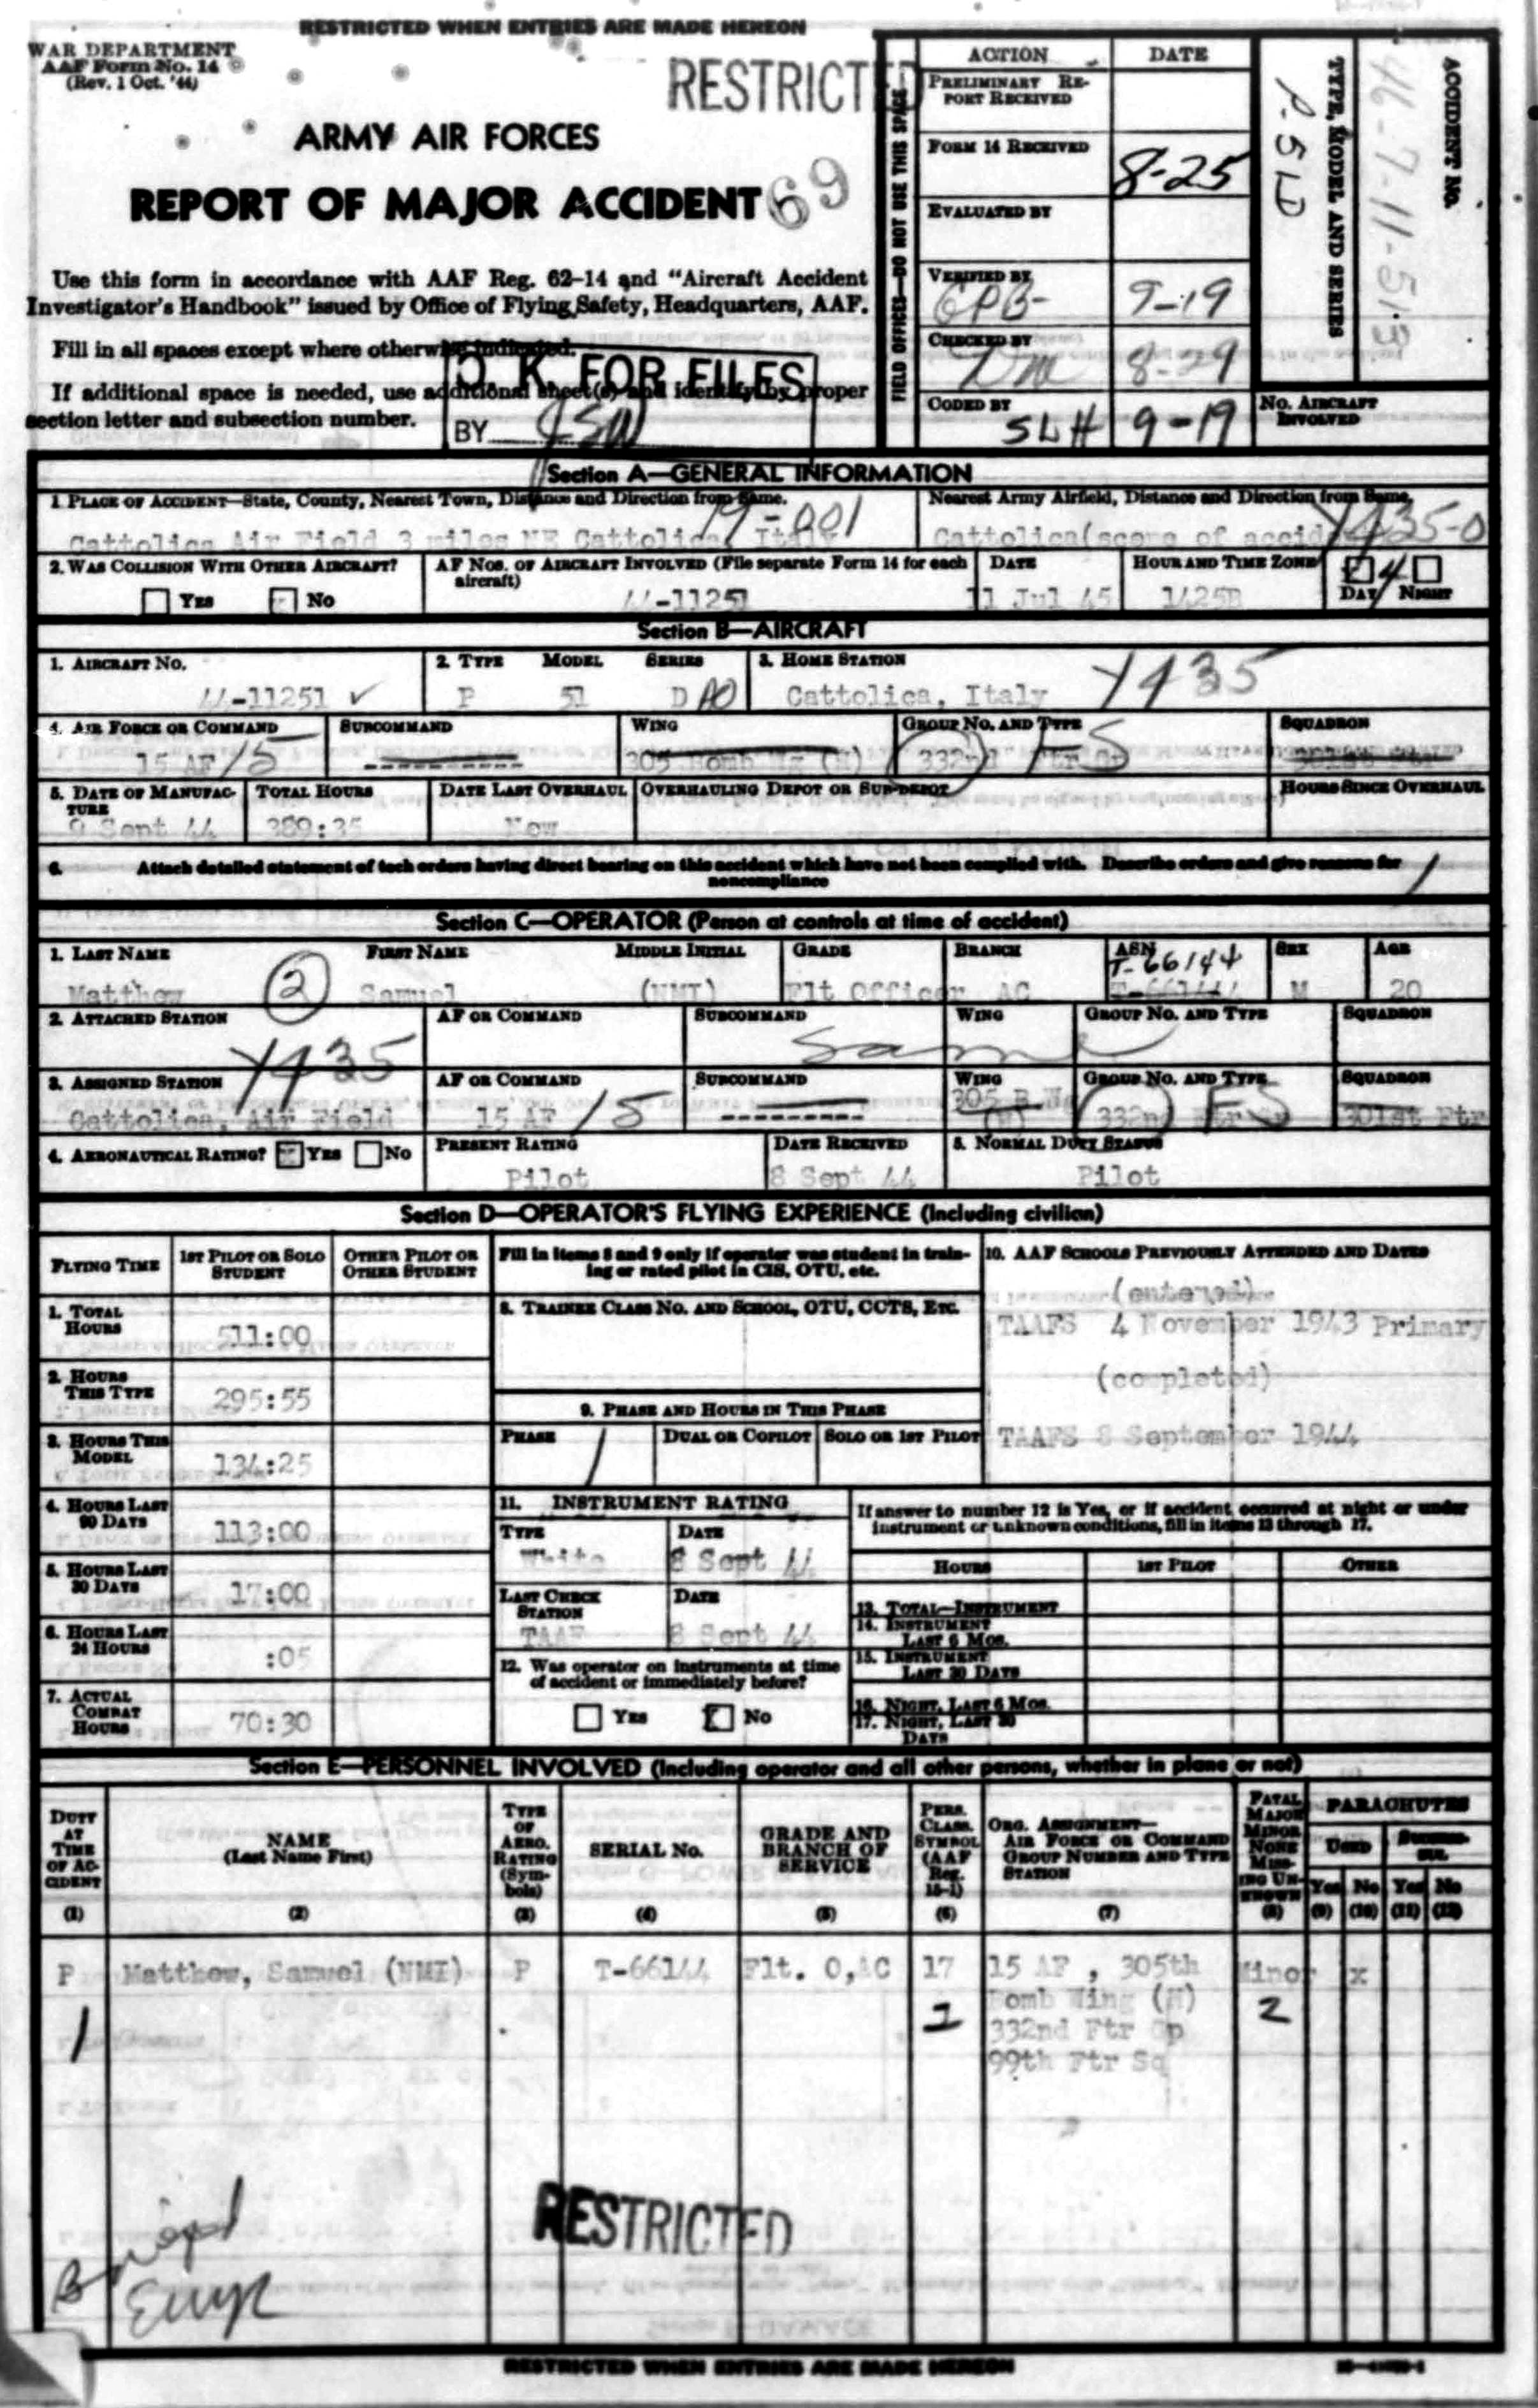 RESTRICTED WHEN ENTRIES ARE MADE HEREON
WAR DEPARTMENT
AAF Form No. 14
(Rev. 1 Oct. '44)
RESTRICTED
ARMY AIR FORCES
REPORT OF MAJOR ACCIDENT 69
Use this form in accordance with AAF Reg. 62-14 and "Aircraft Accident
Investigator's Handbook" issued by Office of Flying Safety, Headquarters, AAF.
Fill in all spaces except where otherwise indicated.
If additional space is needed, use additional sheet(s) and identify by proper
section letter and subsection number.
O. K. FOR FILES
BY
FIELD OFFICES—DO NOT USE THIS SPACE
ACTION DATE
PRELIMINARY REPORT RECEIVED
FORM 14 RECEIVED 8-25
EVALUATED BY
VERIFIED BY 9-19
CHECKED BY 8-29
CODED BY SLH 9-19
TYPE, MODEL AND SERIES
P-51D
ACCIDENT NO.
46-7-11-513
NO. AIRCRAFT INVOLVED
Section A—GENERAL INFORMATION
1 PLACE OF ACCIDENT—State, County, Nearest Town, Distance and Direction from Same. Nearest Army Airfield, Distance and Direction from Same.
Cattolica Air Field 3 miles NE Cattolica, Italy 19-001 Cattolica(scene of accid Y435-0
2. WAS COLLISION WITH OTHER AIRCRAFT? AF NOS. OF AIRCRAFT INVOLVED (File separate Form 14 for each aircraft) DATE HOUR AND TIME ZONE
YES NO 44-11251 11 Jul 45 1425B 4 DAY NIGHT
Section B—AIRCRAFT
1. AIRCRAFT NO. 2. TYPE MODEL SERIES 3. HOME STATION
44-11251 ✓ P 51 D Cattolica, Italy Y435
4. AIR FORCE OR COMMAND SUBCOMMAND WING GROUP NO. AND TYPE SQUADRON
15 AF 15 305 Bomb Wg (H) 332nd Ftr Gp FS 301st Ftr
5. DATE OF MANUFACTURE TOTAL HOURS DATE LAST OVERHAUL OVERHAULING DEPOT OR SUB-DEPOT HOURS SINCE OVERHAUL
9 Sept 44 389:35 New
6. Attach detailed statement of tech orders having direct bearing on this accident which have not been complied with. Describe orders and give reasons for
noncompliance
Section C—OPERATOR (Person at controls at time of accident)
1. LAST NAME FIRST NAME MIDDLE INITIAL GRADE BRANCH ASN SEX AGE
T-66144
Matthew 2 Samuel (NMI) Flt Officer AC M 20
2. ATTACHED STATION AF OR COMMAND SUBCOMMAND WING GROUP NO. AND TYPE SQUADRON
Y435 Same
3. ASSIGNED STATION AF OR COMMAND SUBCOMMAND WING GROUP NO. AND TYPE SQUADRON
Cattolica, Air Field 15 AF 15 305 B Wg (H) 332nd Ftr Gp FS 301st Ftr
4. AERONAUTICAL RATING? YES NO PRESENT RATING DATE RECEIVED 5. NORMAL DUTY STATUS
Pilot 8 Sept 44 Pilot
Section D—OPERATOR'S FLYING EXPERIENCE (Including civilian)
FLYING TIME 1ST PILOT OR SOLO STUDENT OTHER PILOT OR OTHER STUDENT
1. TOTAL HOURS 511:00
2. HOURS THIS TYPE 295:55
3. HOURS THIS MODEL 134:25
4. HOURS LAST 90 DAYS 113:00
5. HOURS LAST 30 DAYS 17:00
6. HOURS LAST 24 HOURS :05
7. ACTUAL COMBAT HOURS 70:30
Fill in items 8 and 9 only if operator was student in training or rated pilot in CIS, OTU, etc.
8. TRAINEE CLASS NO. AND SCHOOL, OTU, CCTS, ETC.
9. PHASE AND HOURS IN THIS PHASE
PHASE DUAL OR COPILOT SOLO OR 1ST PILOT
10. AAF SCHOOLS PREVIOUSLY ATTENDED AND DATES
(entered)
TAAFS 4 November 1943 Primary
(completed)
TAAFS 8 September 1944
11. INSTRUMENT RATING
TYPE DATE
White 8 Sept 44
LAST CHECK STATION DATE
TAAF 8 Sept 44
12. Was operator on instruments at time
of accident or immediately before?
YES NO
If answer to number 12 is Yes, or if accident occurred at night or under
instrument or unknown conditions, fill in items 13 through 17.
HOURS 1ST PILOT OTHER
13. TOTAL—INSTRUMENT
14. INSTRUMENT LAST 6 MOS.
15. INSTRUMENT LAST 30 DAYS
16. NIGHT, LAST 6 MOS.
17. NIGHT, LAST 30 DAYS
Section E—PERSONNEL INVOLVED (Including operator and all other persons, whether in plane or not)
DUTY AT TIME OF ACCIDENT (1)
NAME (Last Name First) (2)
TYPE OF AERO. RATING (Symbols) (3)
SERIAL NO. (4)
GRADE AND BRANCH OF SERVICE (5)
PERS. CLASS. SYMBOL (AAF Reg. 15-1) (6)
ORG. ASSIGNMENT—AIR FORCE OR COMMAND GROUP NUMBER AND TYPE STATION (7)
FATAL MAJOR MINOR NONE MISSING UNKNOWN (8)
PARACHUTES
USED SUCCESSFUL
Yes (9) No (10) Yes (11) No (12)
P Matthew, Samuel (NMI) P T-66144 Flt. O,AC 17 15 AF , 305th Minor x
1 1 Bomb Wing (H) 2
332nd Ftr Gp
99th Ftr Sq
RESTRICTED
RESTRICTED WHEN ENTRIES ARE MADE HEREON